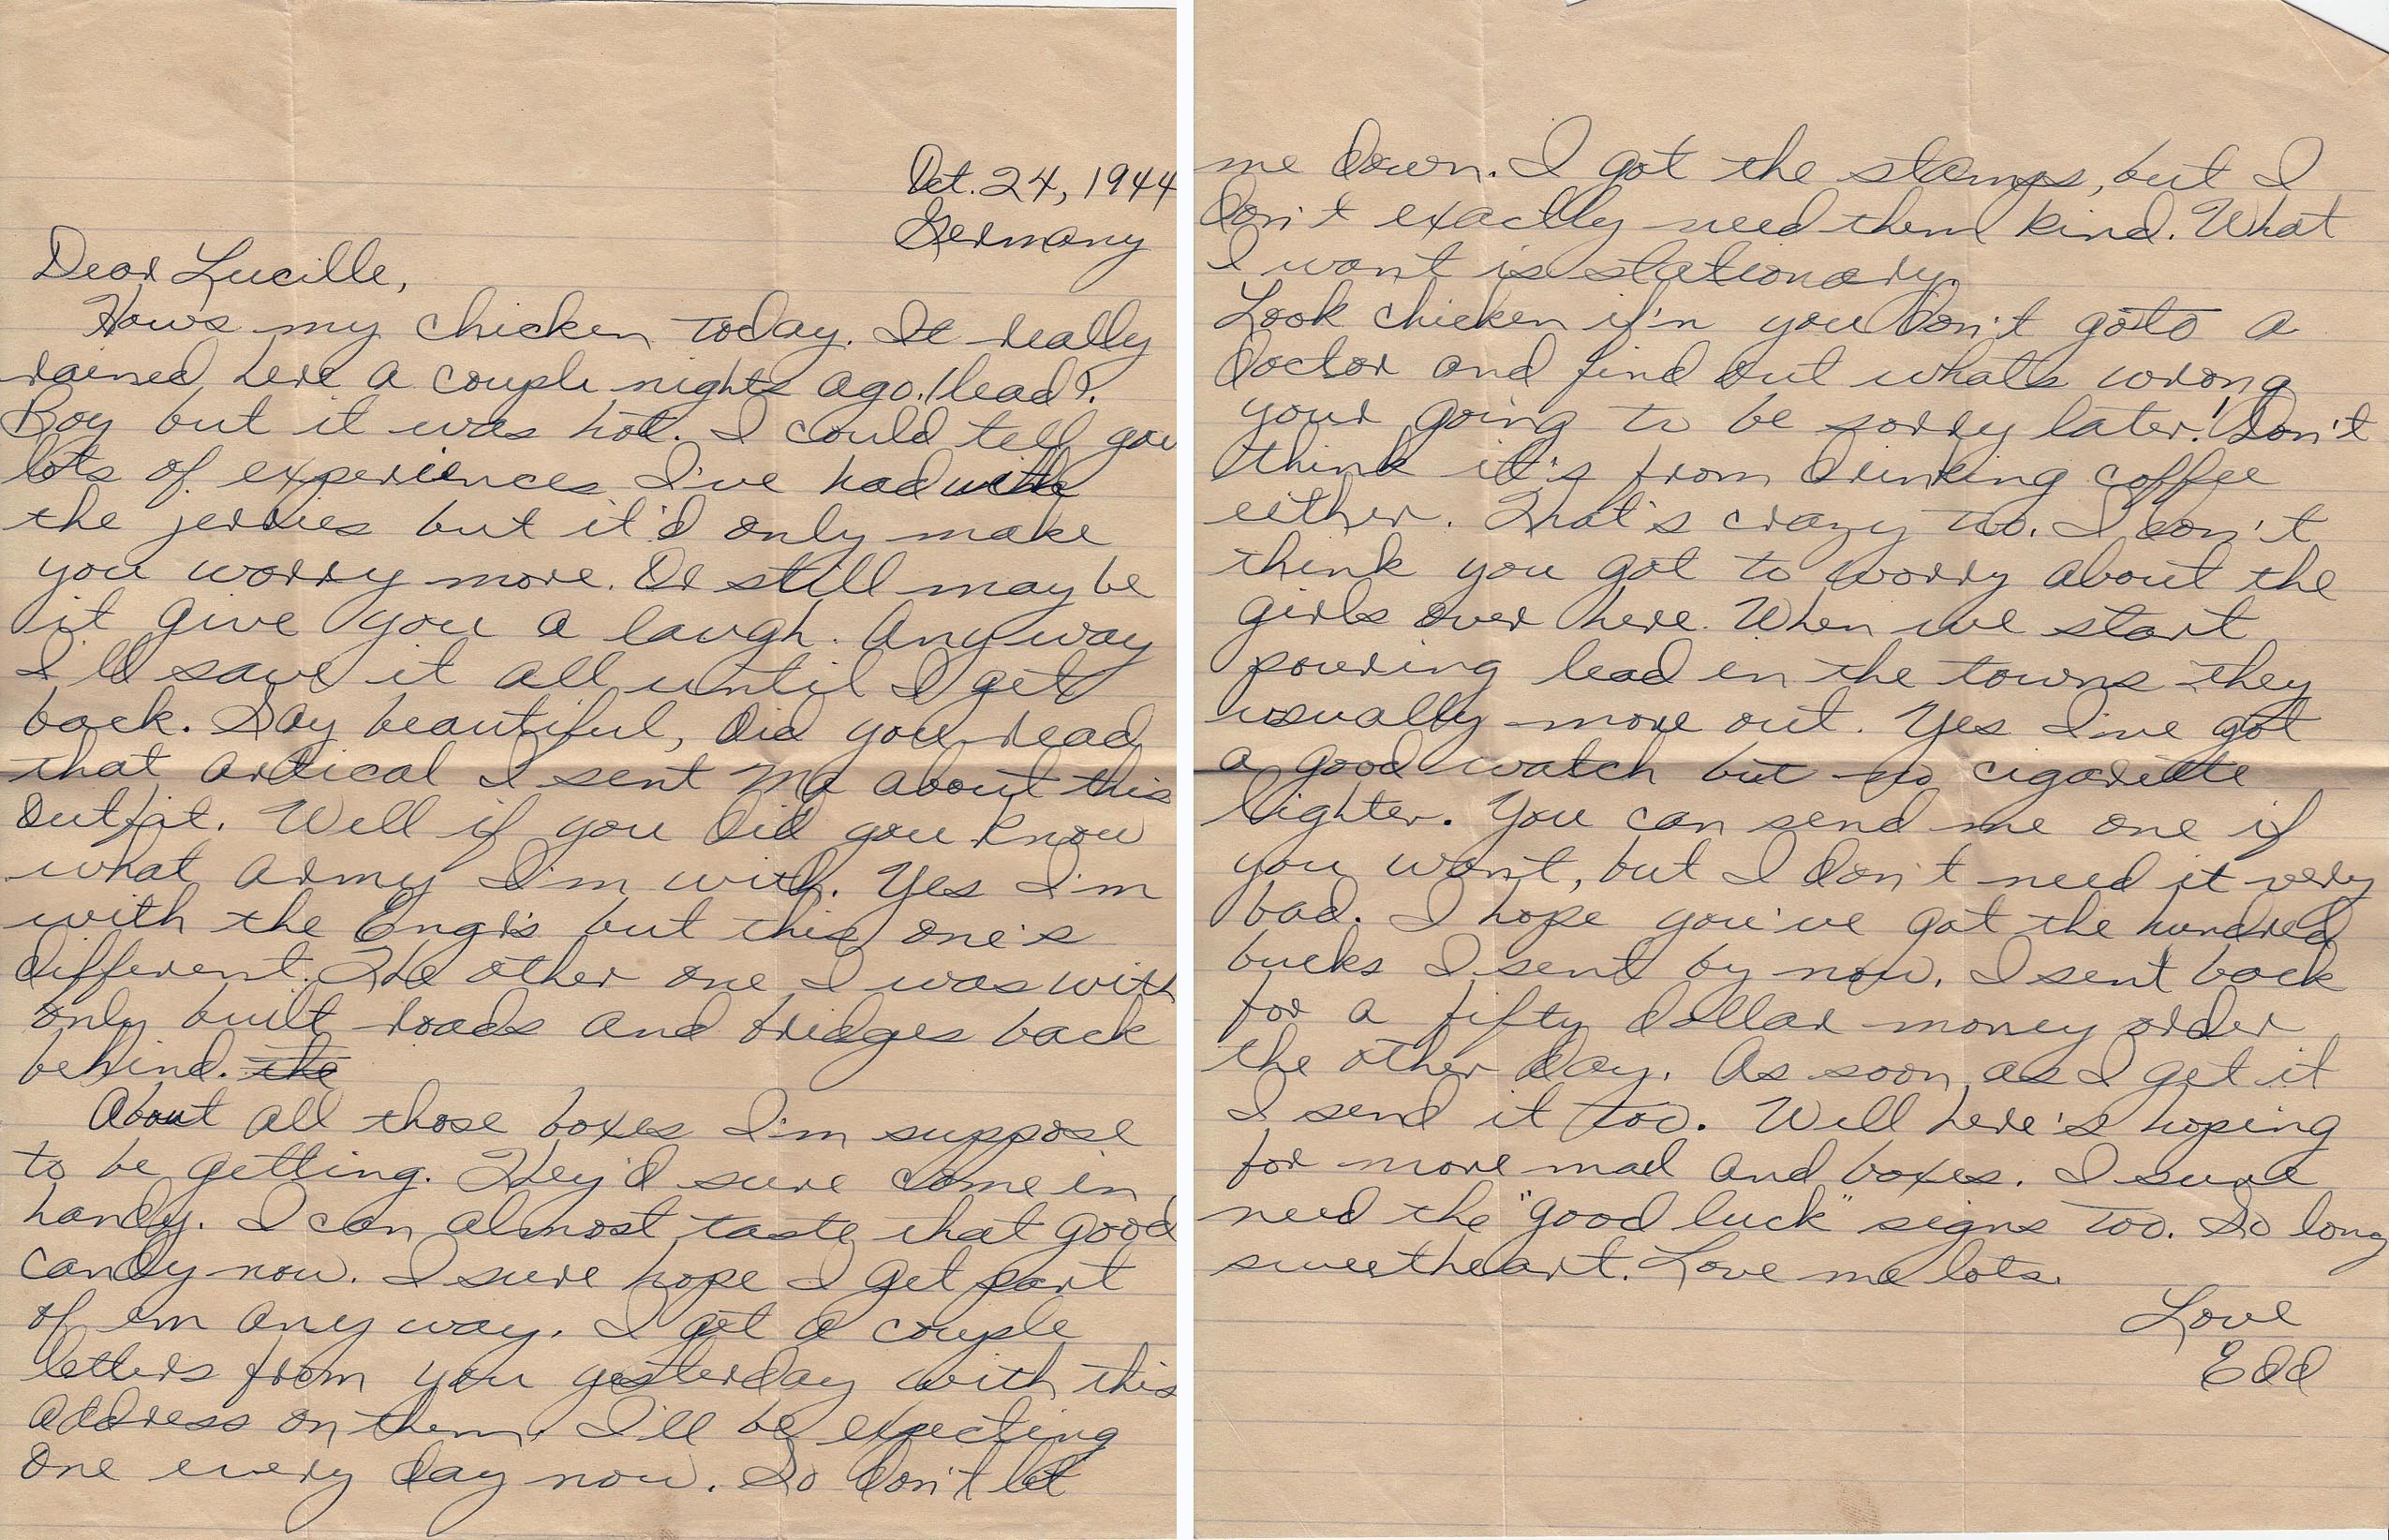 Oct. 24, 1944
Germany
Dear Lucille,
How's my chicken today. It really
rained here a couple nights ago. (lead).
Boy but it was hot. I could tell you
lots of experiences I've had with
the jerries but it'd only make
you worry more. Or still may be
it give you a laugh. Anyway
I'll save it all until I get
back. Say beautiful, did you read
that artical I sent Ma about this
outfit. Well if you did you know
what army I'm with. Yes I'm
with the Engrs but this one's
different. The other one I was with
only built roads and bridges back
behind. the
About all those boxes I'm suppose
to be getting. They'd sure come in
handy. I can almost taste that good
candy now. I sure hope I get part
of em any way. I got a couple
letters from you yesterday with this
address on them. I'll be expecting
one every day now. So don't let
me down. I got the stamps, but I
don't exactly need them kind. What
I want is stationary.
Look chicken if'n you don't go to a
doctor and find out whats wrong
your going to be sorry later! Don't
think it's from drinking coffee
either. That's crazy too. I don't
think you got to worry about the
girls over here. When we start
pouring lead in the towns they
usually move out. Yes I've got
a good watch but no cigarette
lighter. You can send me one if
you want, but I don't need it very
bad. I hope you've got the hundred
bucks I sent by now. I sent back
for a fifty dollar money order
the other day. As soon as I get it
I send it too. Well here's hoping
for more mail and boxes. I sure
need the "good luck" signs too. So long
sweetheart. Love me lots.
Love
Edd